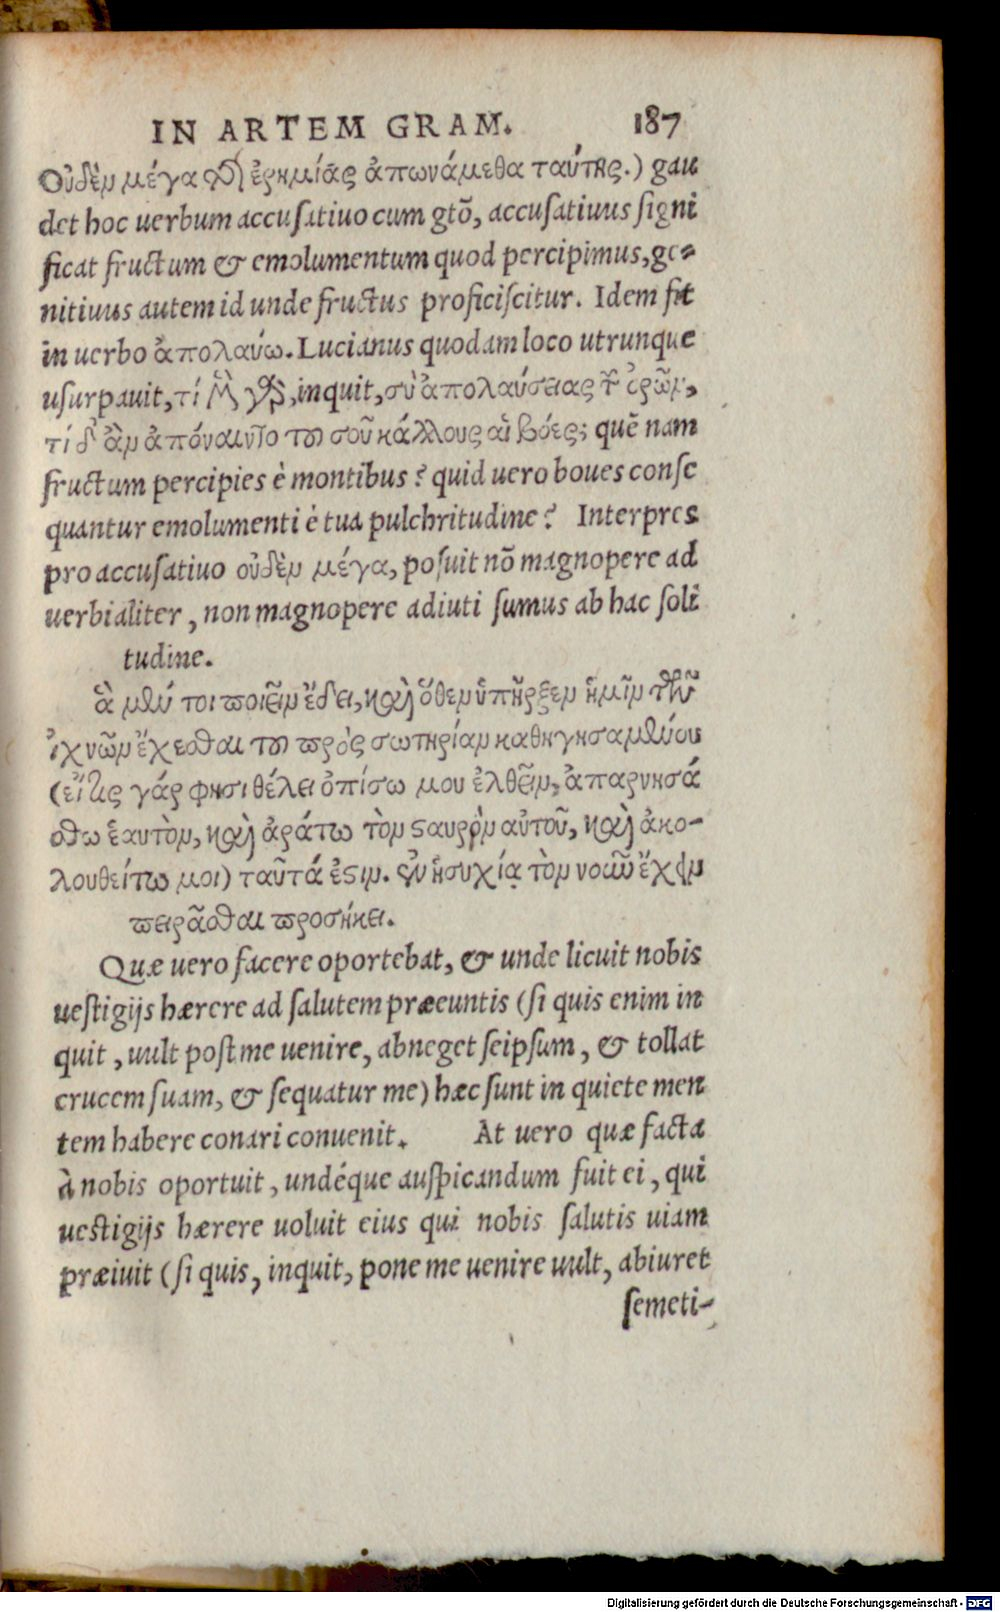 IN ARTEM GRAM. 187
Οὐδὲν μέγα τῆς ἐρημίας ἀπωνάμεθα ταύτης.) gau
det hoc uerbum accusatiuo cum gtō, accusatiuus signi
ficat fructum & emolumentum quod percipimus, ge-
nitiuus autem id unde fructus proficiscitur. Idem fit
in uerbo ἀπολαύω. Lucianus quodam loco utrunque
usurpauit, τί μὲν γὰρ, inquit, σὺ ἀπολαύσειας τῶν ὀρῶν,
τί δ' ἂν ἀπόναιντο τοῦ σοῦ κάλλους αἱ βόες; quē nam
fructum percipies è montibus? quid uero boues conse
quantur emolumenti è tua pulchritudine? Interpres
pro accusatiuo οὐδὲν μέγα, posuit nō magnopere ad
uerbialiter, non magnopere adiuti sumus ab hac soli
tudine.
ἃ μὲν τοι ποιεῖν ἔδει, καὶ ὅθεν ὑπῆρξεν ἡμῖν τῶν
ἰχνῶν ἔχεσθαι τοῦ πρὸς σωτηρίαν καθηγησαμένου
(εἴ τις γάρ φησι θέλει ὀπίσω μου ἐλθεῖν, ἀπαρνησά
σθω ἑαυτὸν, καὶ ἀράτω τὸν σαυρὸν αὐτοῦ, καὶ ἀκο-
λουθείτω μοι) ταῦτά ἐστιν. ἐν ἡσυχίᾳ τὸν νοῦν ἔχειν
πειρᾶσθαι προσήκει.
Quæ uero facere oportebat, & unde licuit nobis
uestigijs hærere ad salutem præeuntis (si quis enim in
quit, uult post me uenire, abneget seipsum, & tollat
crucem suam, & sequatur me) hæc sunt in quiete men
tem habere conari conuenit. At uero quæ facta
à nobis oportuit, undéque auspicandum fuit ei, qui
uestigijs hærere uoluit eius qui nobis salutis uiam
præiuit (si quis, inquit, pone me uenire uult, abiuret
semeti-
Digitalisierung gefördert durch die Deutsche Forschungsgemeinschaft - DFG